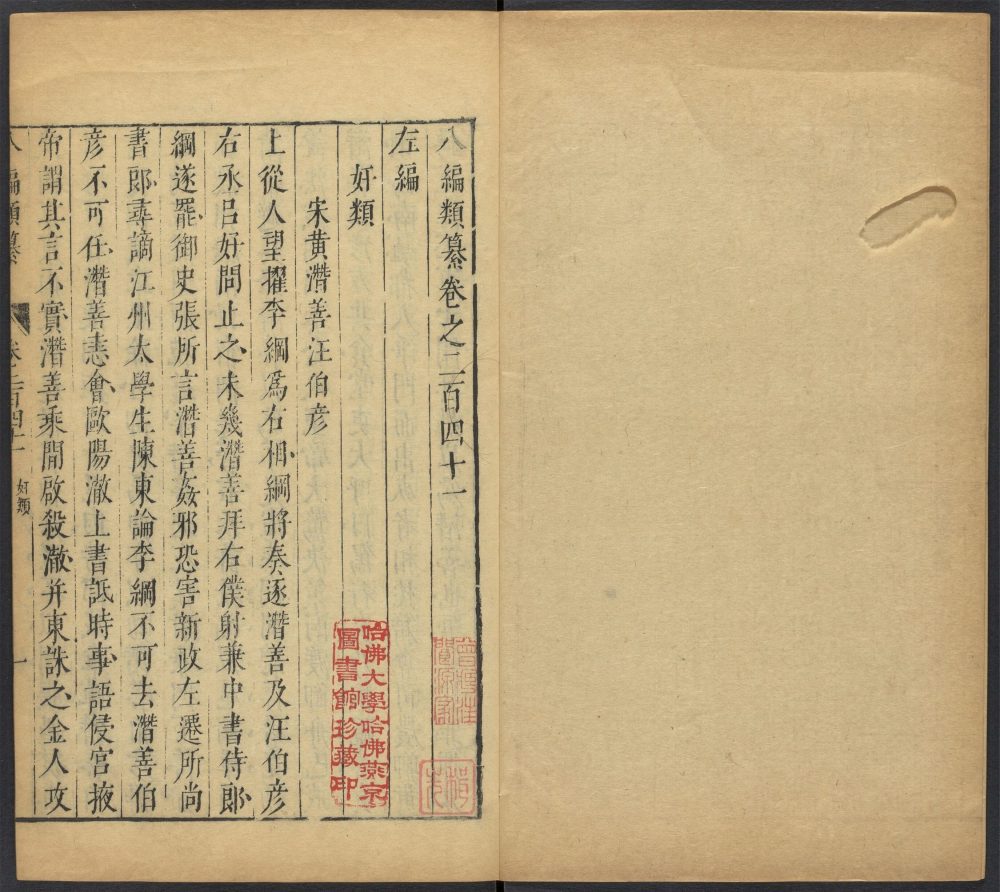 八編類纂卷之二百四十一
左編
奸類
宋黃濳善汪伯彥
上從人望擢李綱爲右相綱將奏逐濳善及汪伯彥
右丞呂好問止之未幾濳善拜右僕射兼中書侍郎
綱遂罷御史張所言濳善姦邪恐害新政左遷所尚
書郎尋謫江州太學生陳東論李綱不可去濳善伯
彥不可任濳善恚會歐陽澈上書詆時事語侵宮掖
帝謂其言不實濳善乘間啟殺澈并東誅之金人攻
八編類纂
卷之二百四十一
奸類
一
哈佛大學哈佛燕京
圖書館珍藏印